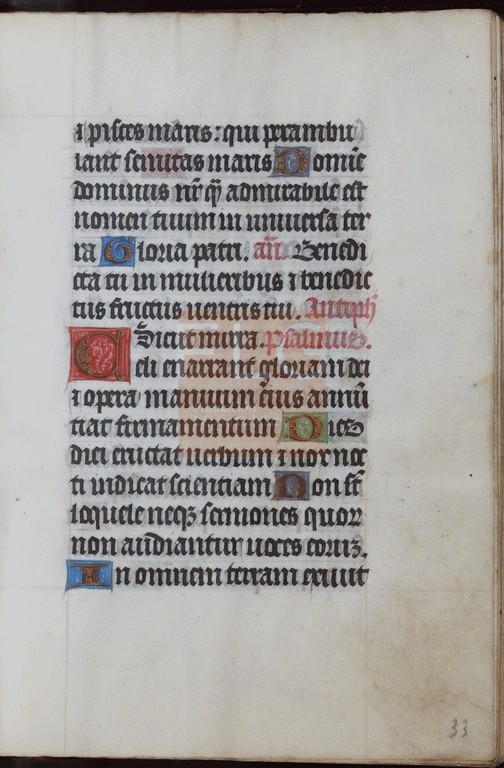 ⁊ pisces maris: qui perambu
lant semitas maris Domie
dominus nr̄ q̄ admirabile est
nomen tuum in uniuersa ter
ra Gloria patri. añ. Benedi
cta tu in mulieribus ⁊ benedic
tus fructus uentris tui. Antiph
Sicut mirra. Psalmus.
Celi enarrant gloriam dei
⁊ opera manuum eius annūi
tiat firmamentum Dies
diei eructat uerbum ⁊ nox noc
ti indicat scientiam Non st̄
loquele neqꝫ sermones quorꝝ
non audiantur uoces eorum.
In omnem terram exiuit
33